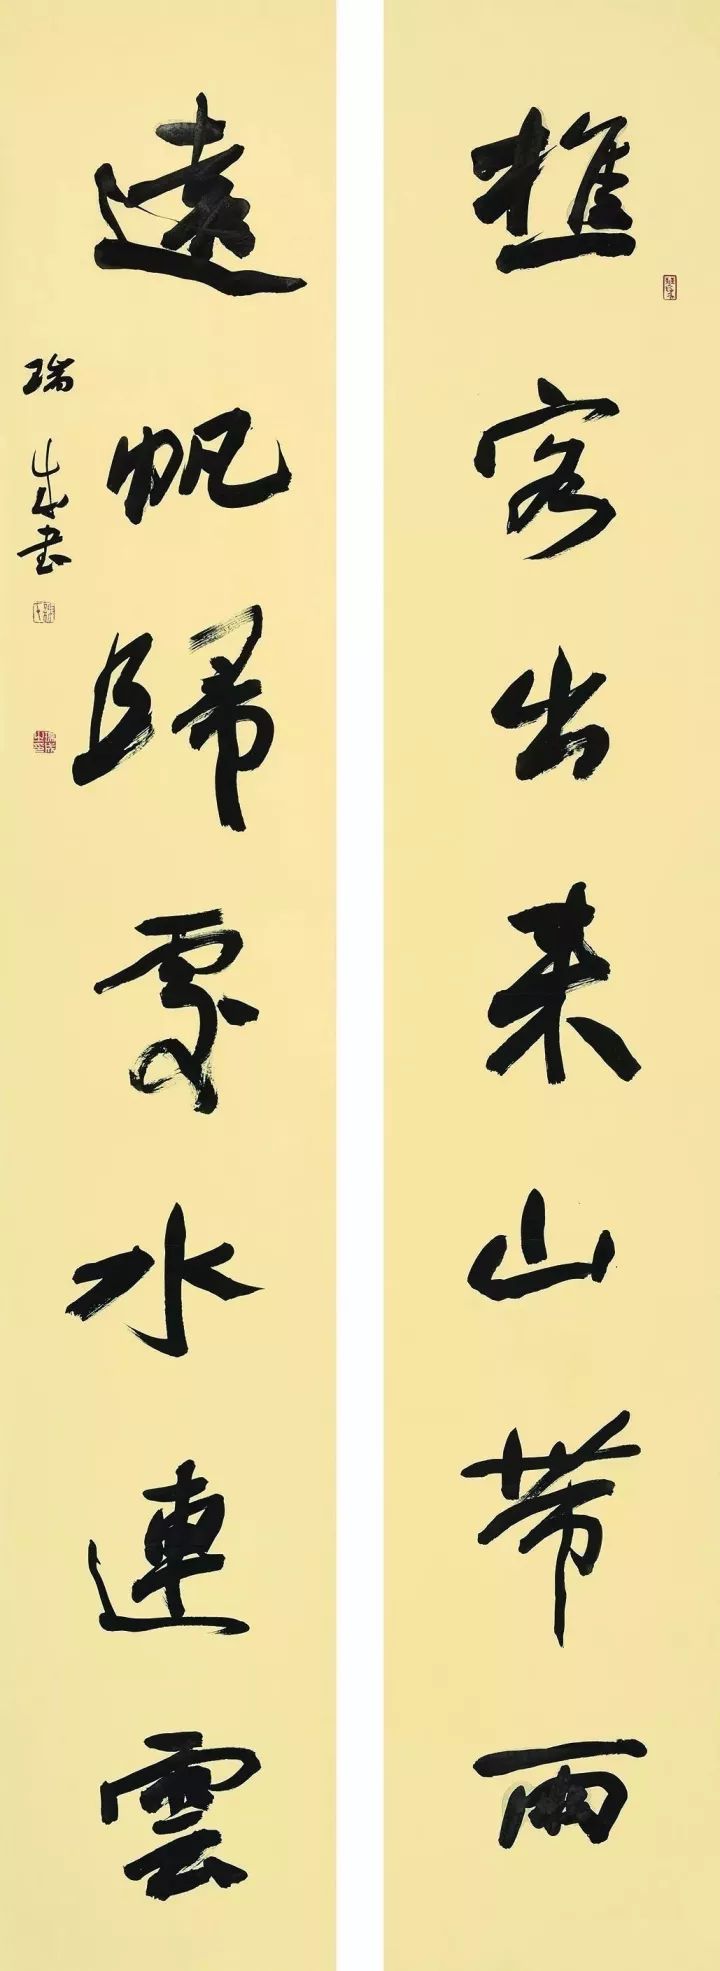 樵客出来山带雨
遠帆歸處水連雲
瑞生書